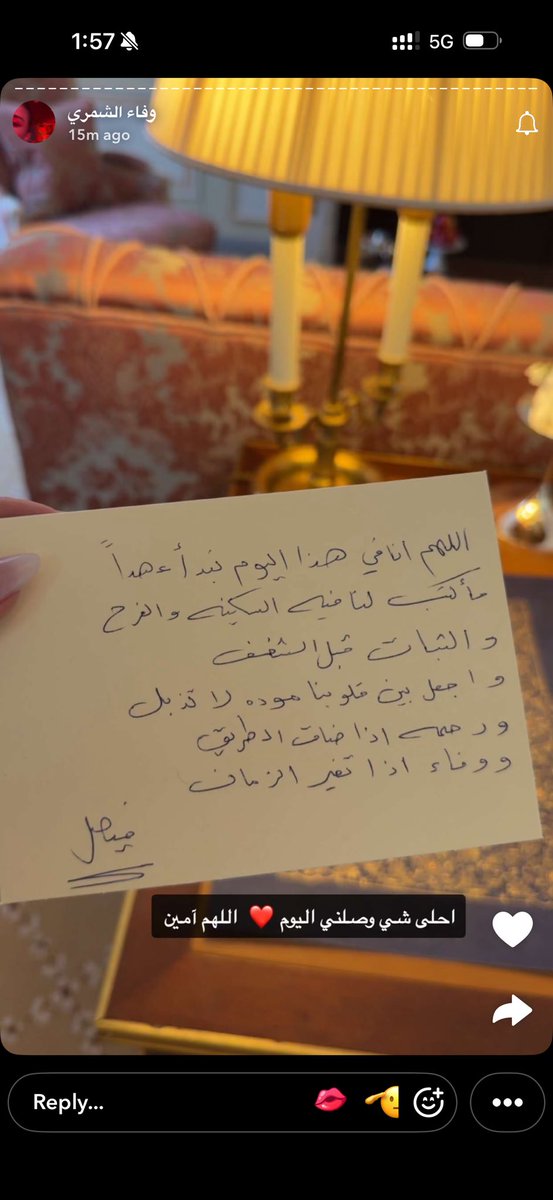 1:57
5G
وفاء الشمري
15m ago
اللهم انا في هذا اليوم نبدأ عهداً
فأكتب لنا فيه السكينه والفرح
والثبات قبل الشغف
واجعل بين قلوبنا موده لا تذبل
ورحمه اذا ضاق الطريق
ووفاء اذا تغير الزمان
فيصل
احلى شي وصلني اليوم ❤️ اللهم آمين
Reply...